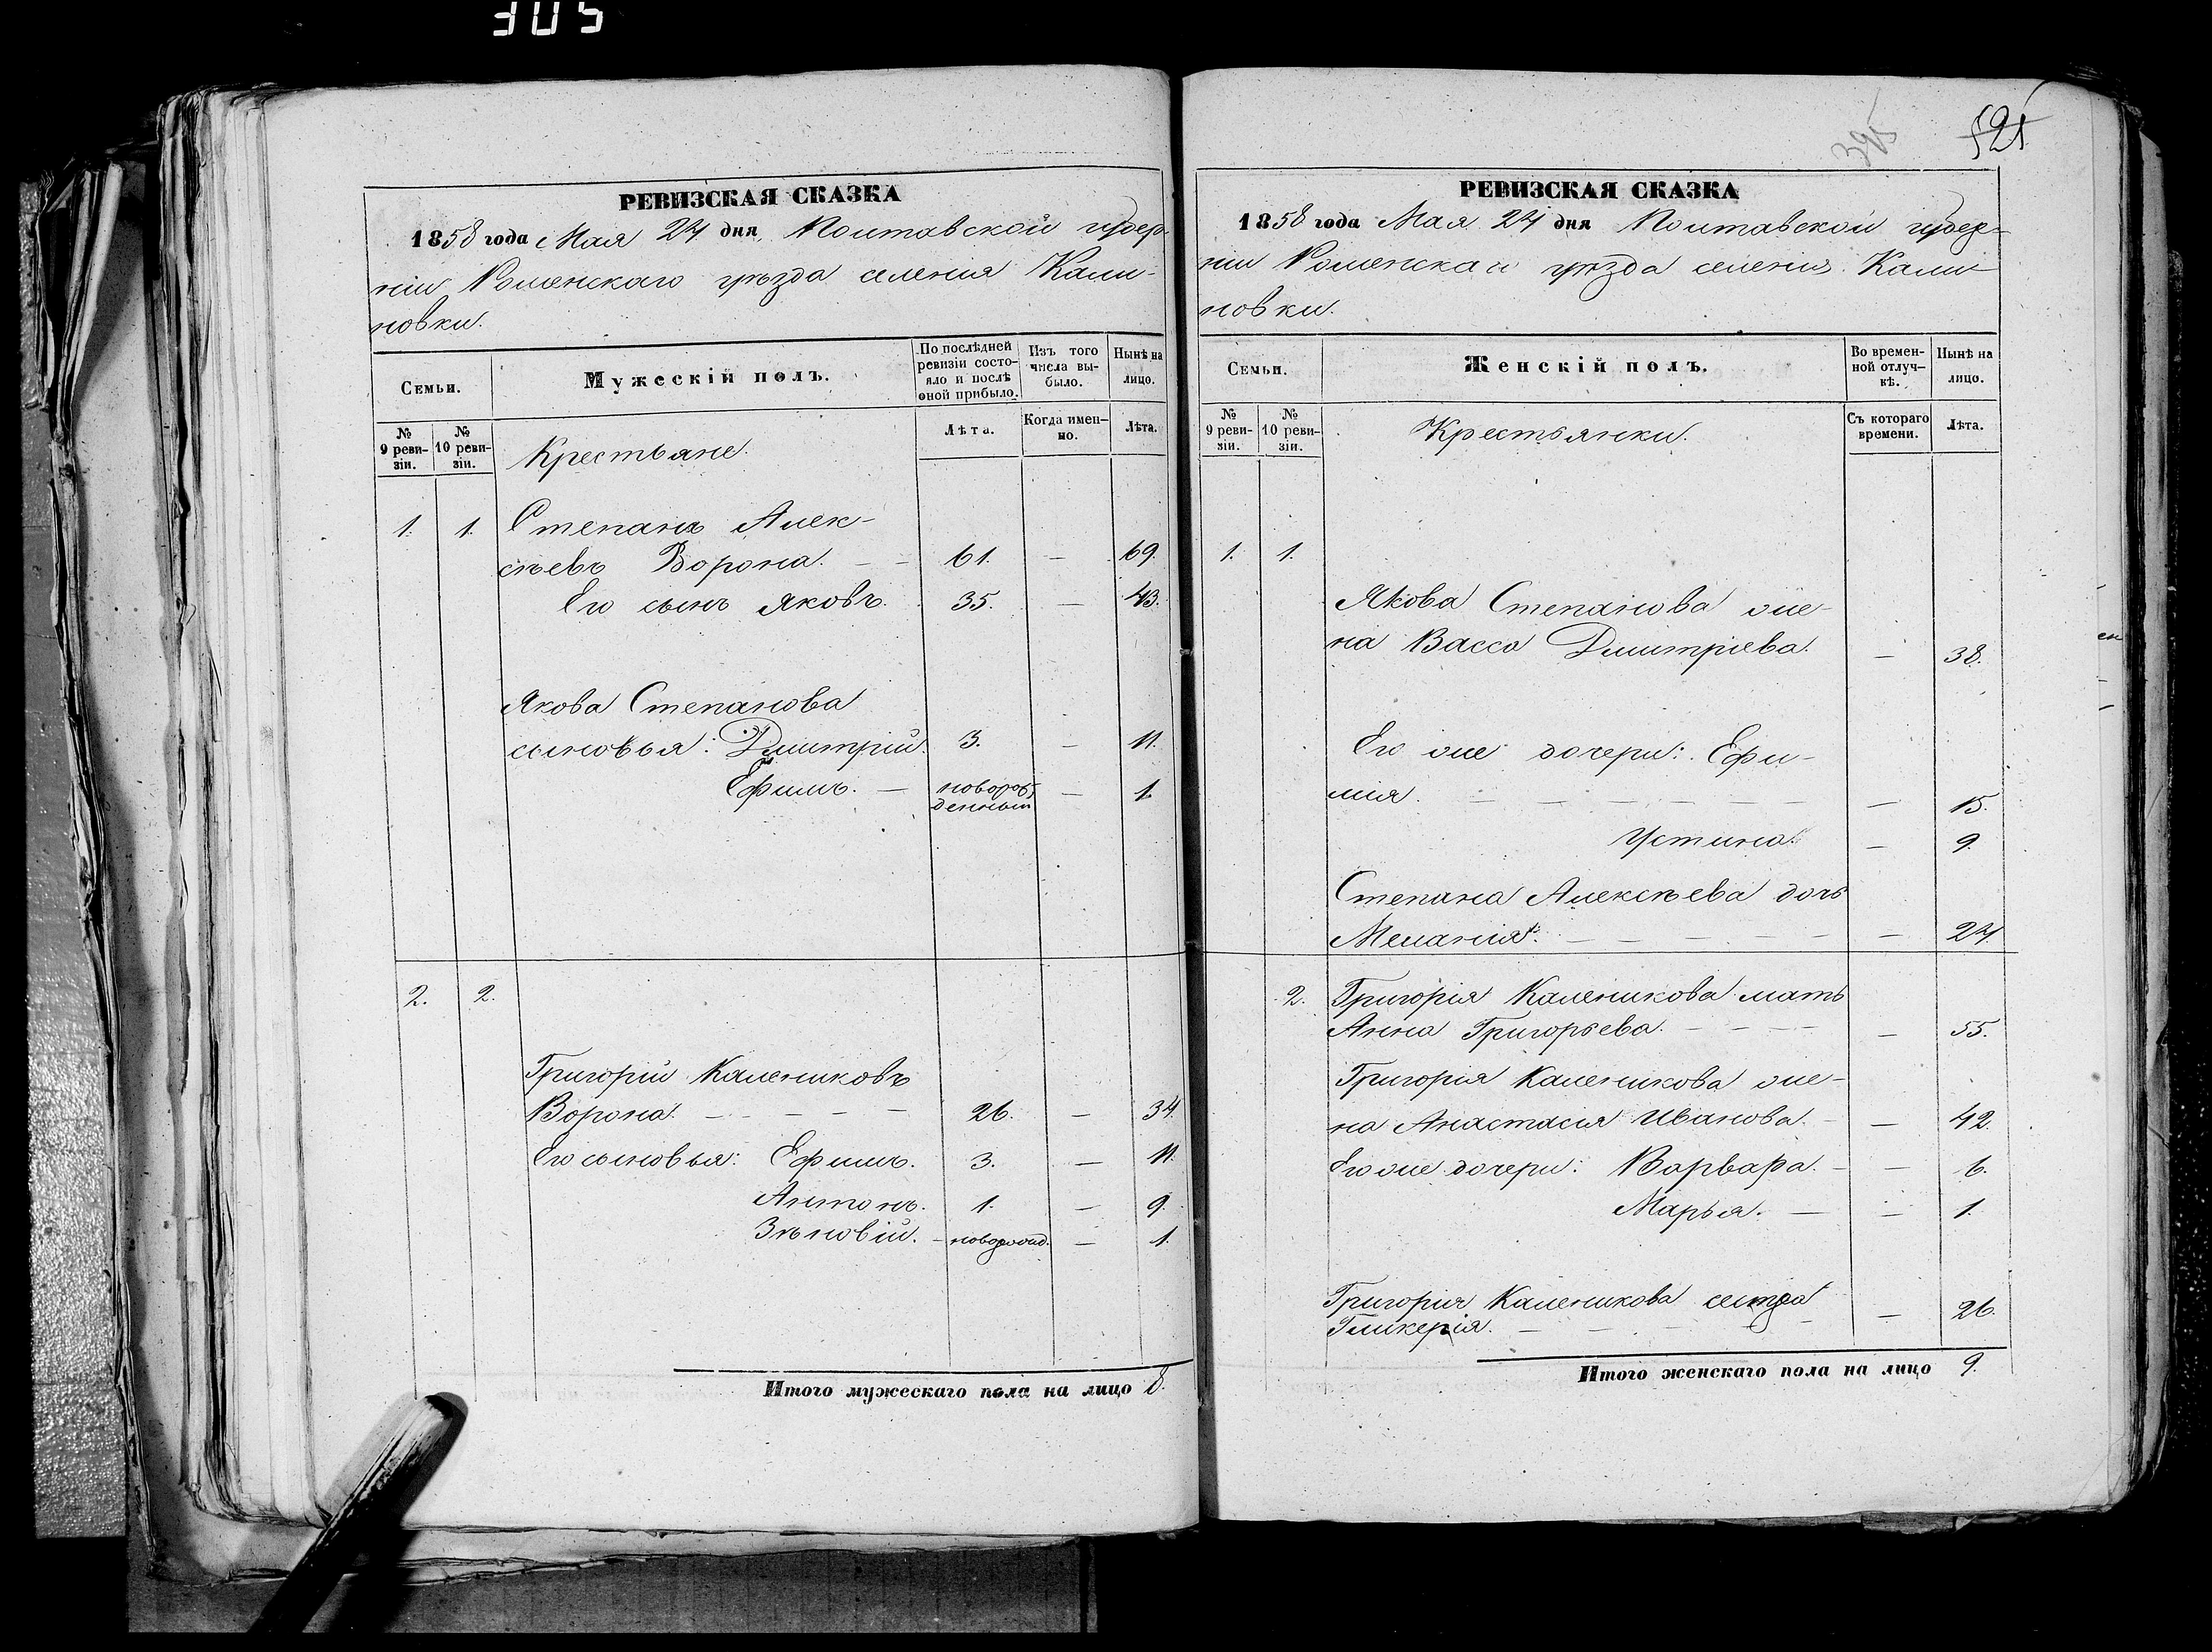 305
РЕВИЗСКАЯ СКАЗКА
1858 года Мая 24 дня Полтавской губер-
ніи Роменскаго уѣзда селенія Кали-
новки.
Семьи.
Мужескій полъ.
По послѣдней ревизіи состо-яло и послѣ оной прибыло.
Изъ того числа вы-было.
Нынѣ на лицо.
№ 9 реви-зіи.
№ 10 реви-зіи.
Крестьяне.
Лѣта.
Когда имен-но.
Лѣта.
1. 1. Степанъ Алек-
сѣевъ Ворона. — — 61. — 69.
Его сынъ Яковъ. 35. — 43.
Якова Степанова
сыновья: Дмитрій. 3. — 11.
Ефимъ. — новорож
денный — 1.
2. 2.
Григорій Калениковъ
Ворона. — — — — — 26. — 34.
Его сыновья: Ефимъ. 3. — 11.
Антонъ. 1. — 9.
Зѣновій. — новорожд. — 1.
Итого мужескаго пола на лицо 8.
395
521
РЕВИЗСКАЯ СКАЗКА
1858 года Мая 24 дня Полтавской губер-
ніи Роменскаго уѣзда селенія Кали-
новки.
Семьи.
Женскій полъ.
Во времен-ной отлуч-кѣ.
Нынѣ на лицо.
№ 9 реви-зіи.
№ 10 реви-зіи.
Крестьянки.
Съ котораго времени.
Лѣта.
1. 1.
Якова Степанова же-
на Васса Дмитріева. — 38.
Его же дочери: Ефи-
мія. — — — — — — — 15.
Устина. — 9.
Степана Алексѣева дочь
Меланія. — — — — — — 24.
2. Григорія Каленикова мать
Анна Григорьева. — — — — — 55.
Григорія Каленикова же-
на Анастасія Иванова. — — 42.
Его же дочери: Варвара. — — 6.
Марья. — — 1.
Григорія Каленикова сестра
Гликерія. — — — — — — 26.
Итого женскаго пола на лицо 9.